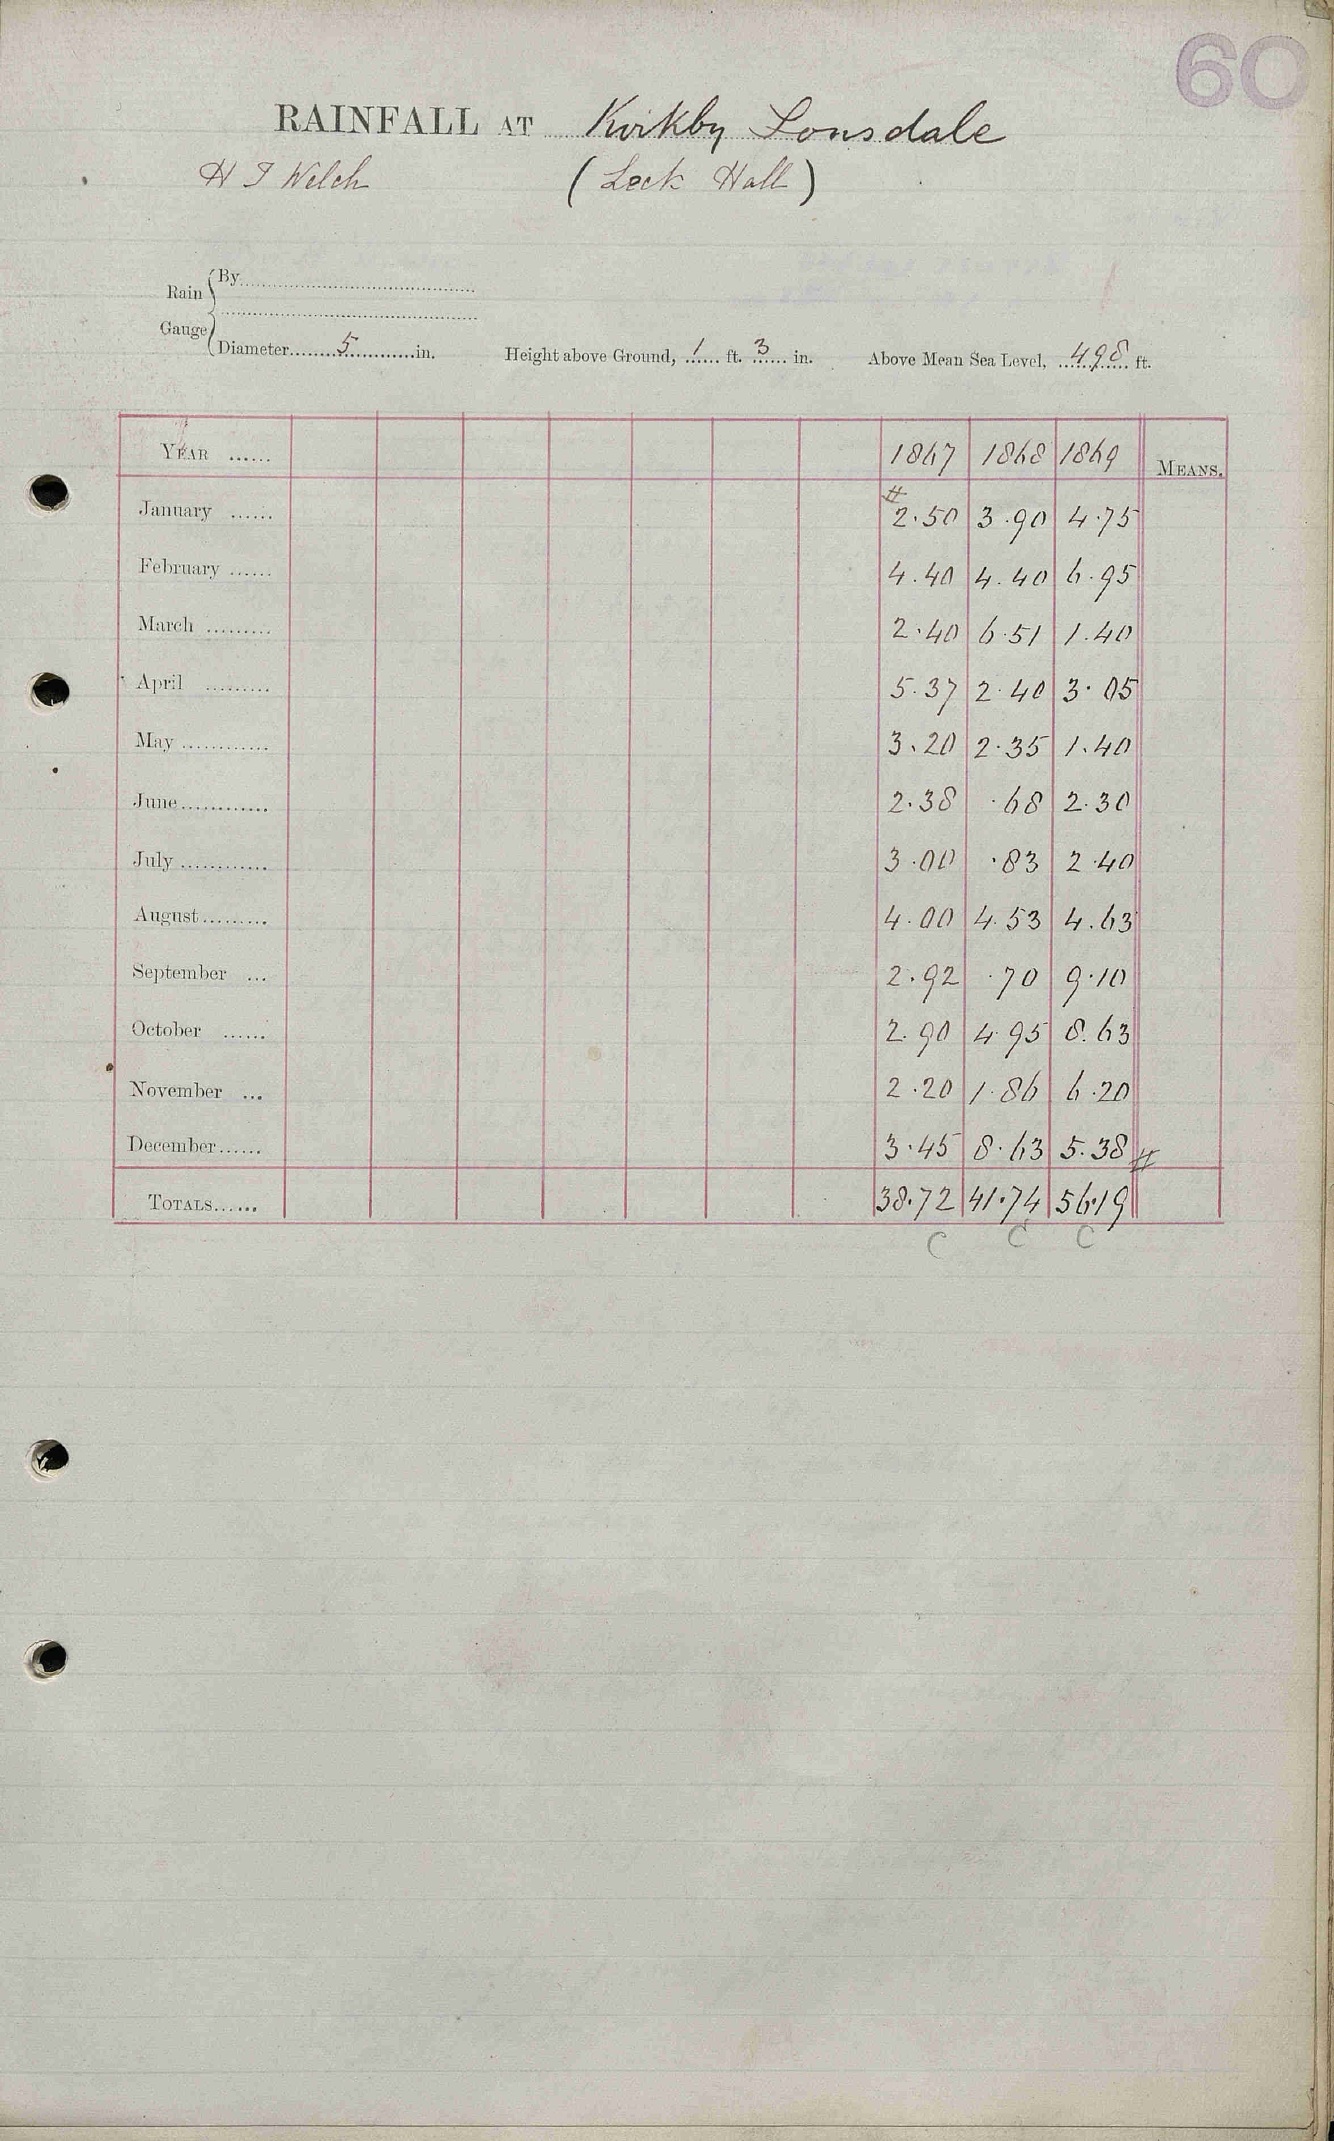 60
RAINFALL AT Kirkby Lonsdale
H I Welch (Leck Hall)
Rain Gauge By
Diameter 5 in. Height above Ground, 1 ft. 3 in. Above Mean Sea Level, 498 ft.
YEAR 1867 1868 1869 MEANS.
January # 2.50 3.90 4.75
February 4.40 4.40 6.95
March 2.40 6.51 1.40
April 5.37 2.40 3.05
May 3.20 2.35 1.40
June 2.38 .68 2.30
July 3.00 .83 2.40
August 4.00 4.53 4.63
September 2.92 .70 9.10
October 2.90 4.95 8.63
November 2.20 1.86 6.20
December 3.45 8.63 5.38 #
TOTALS 38.72 41.74 56.19
C C C